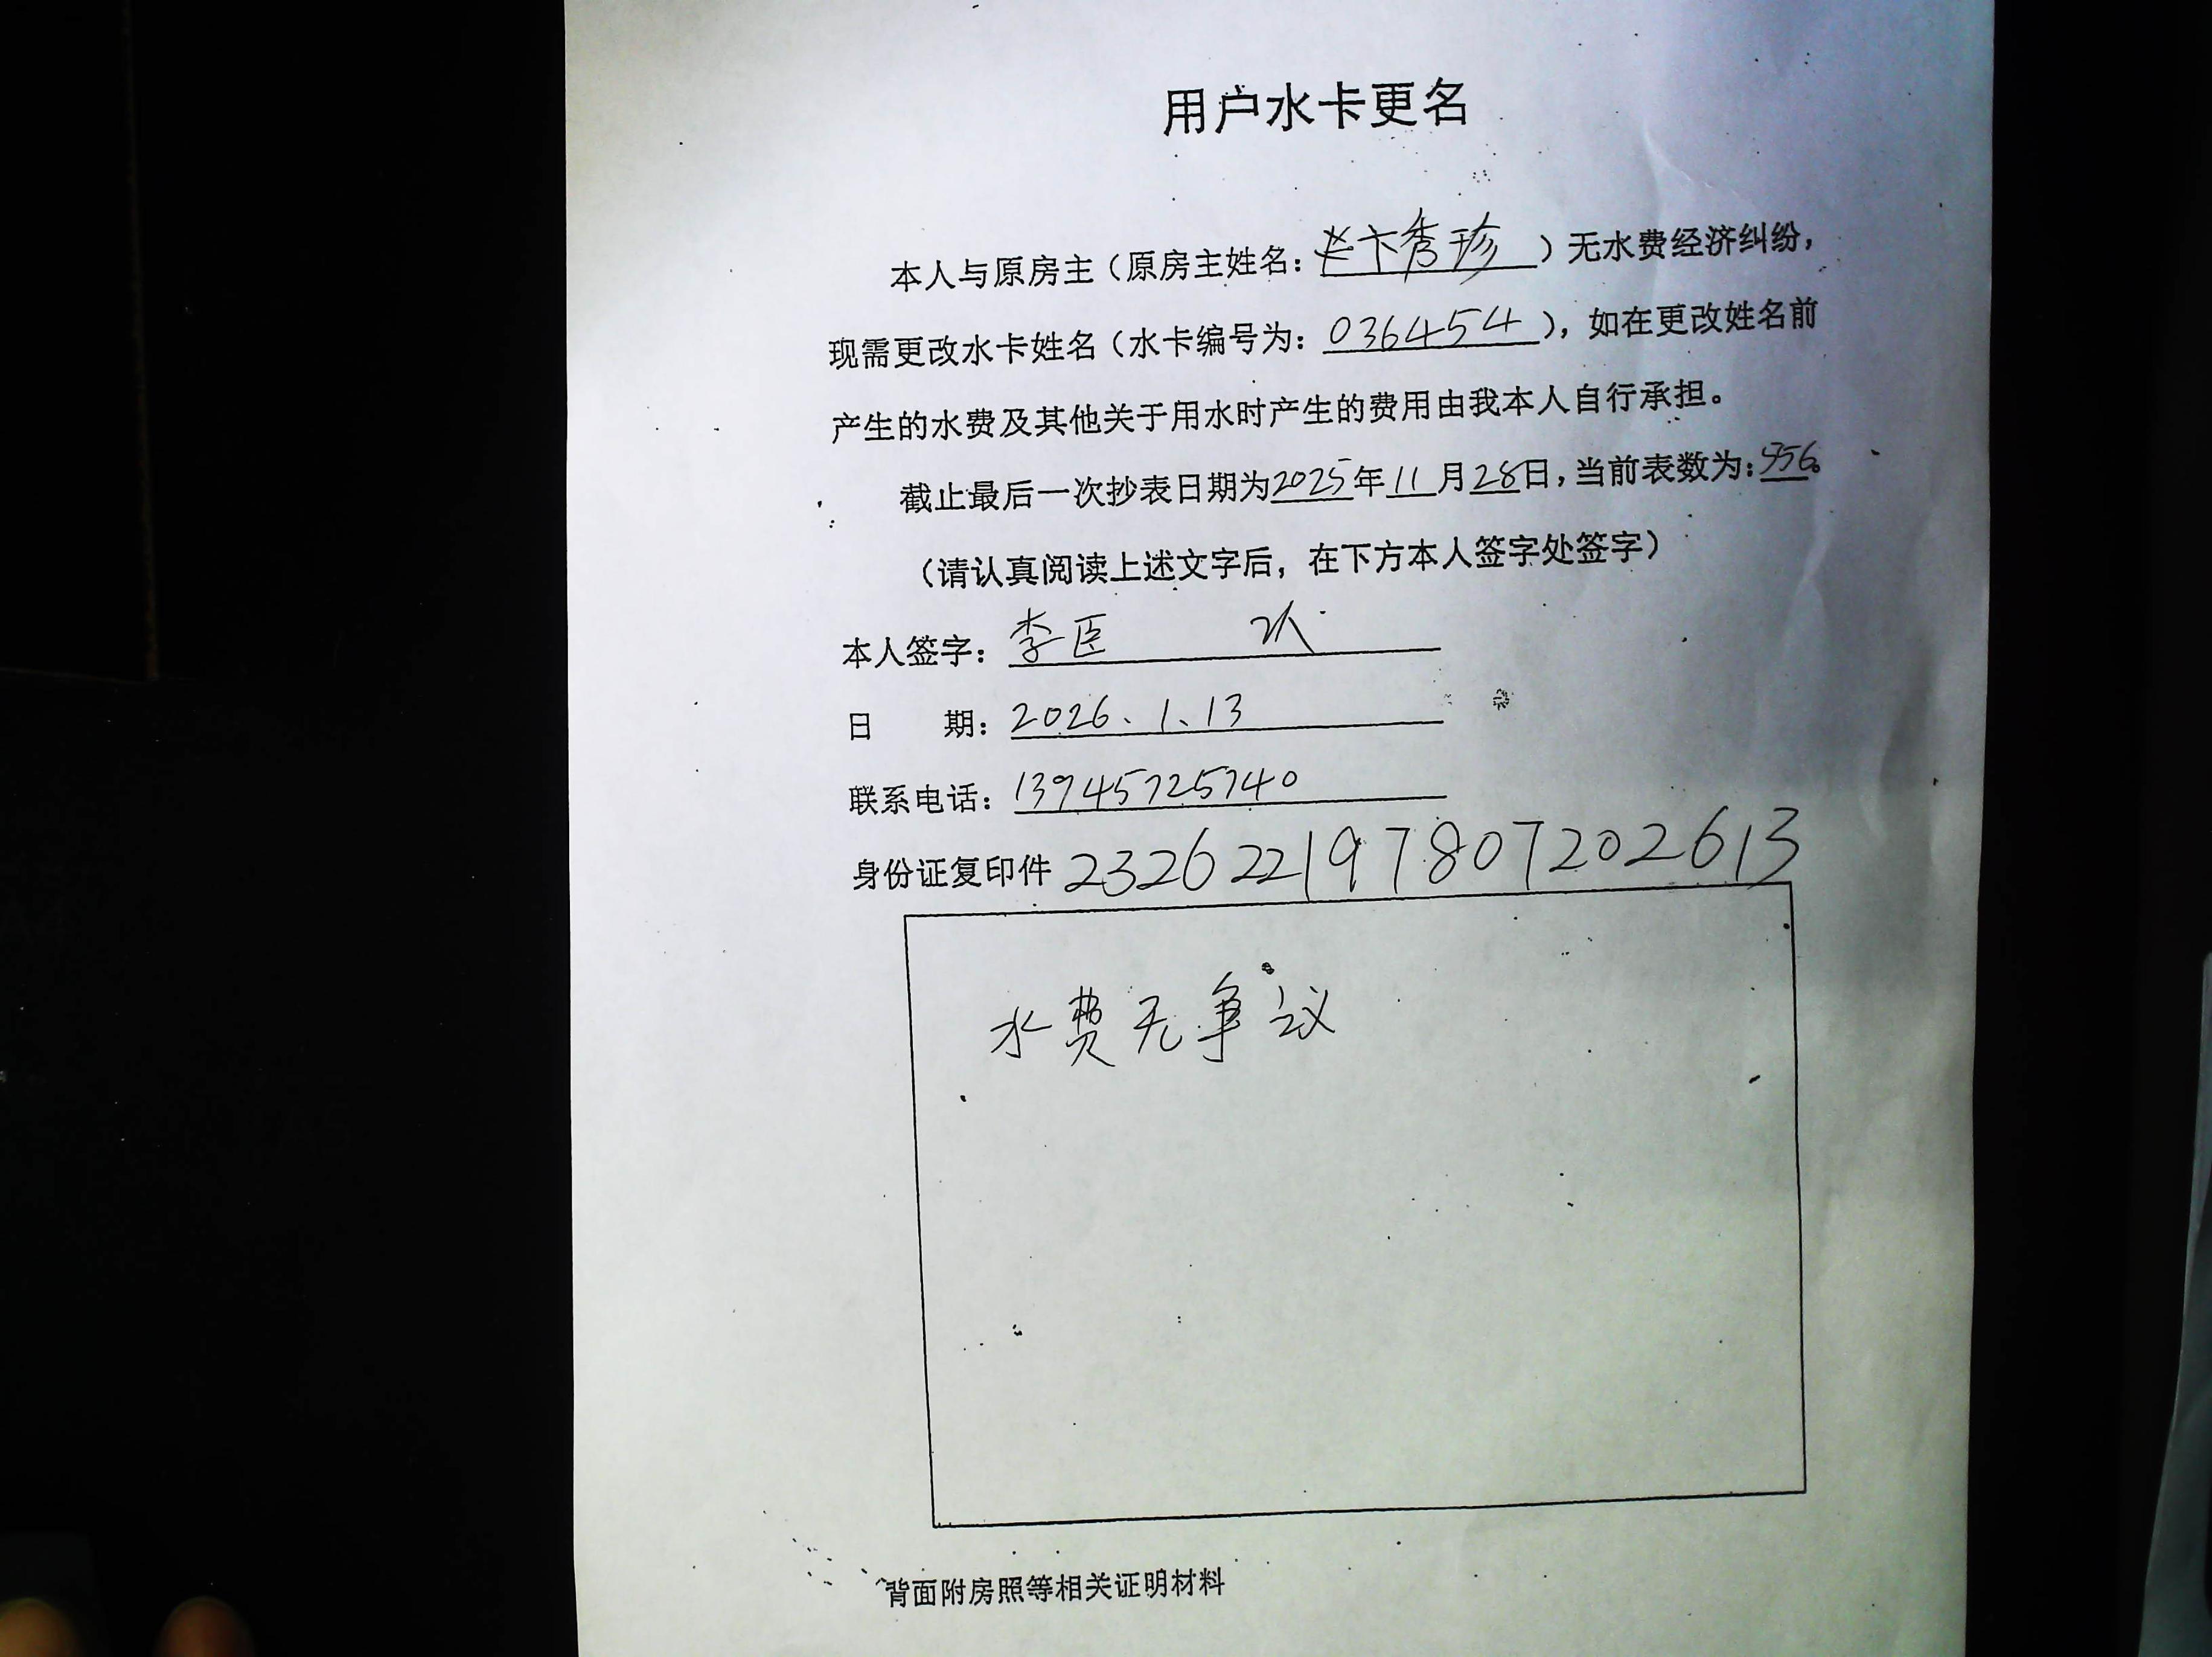 用户水卡更名
本人与原房主（原房主姓名：卞秀珍）无水费经济纠纷，
现需更改水卡姓名（水卡编号为：036454），如在更改姓名前
产生的水费及其他关于用水时产生的费用由我本人自行承担。
截止最后一次抄表日期为2025年11月28日，当前表数为：956。
（请认真阅读上述文字后，在下方本人签字处签字）
本人签字：李臣
日 期：2026、1、13
联系电话：13945725740
身份证复印件 232622197807202613
水费无争议
背面附房照等相关证明材料